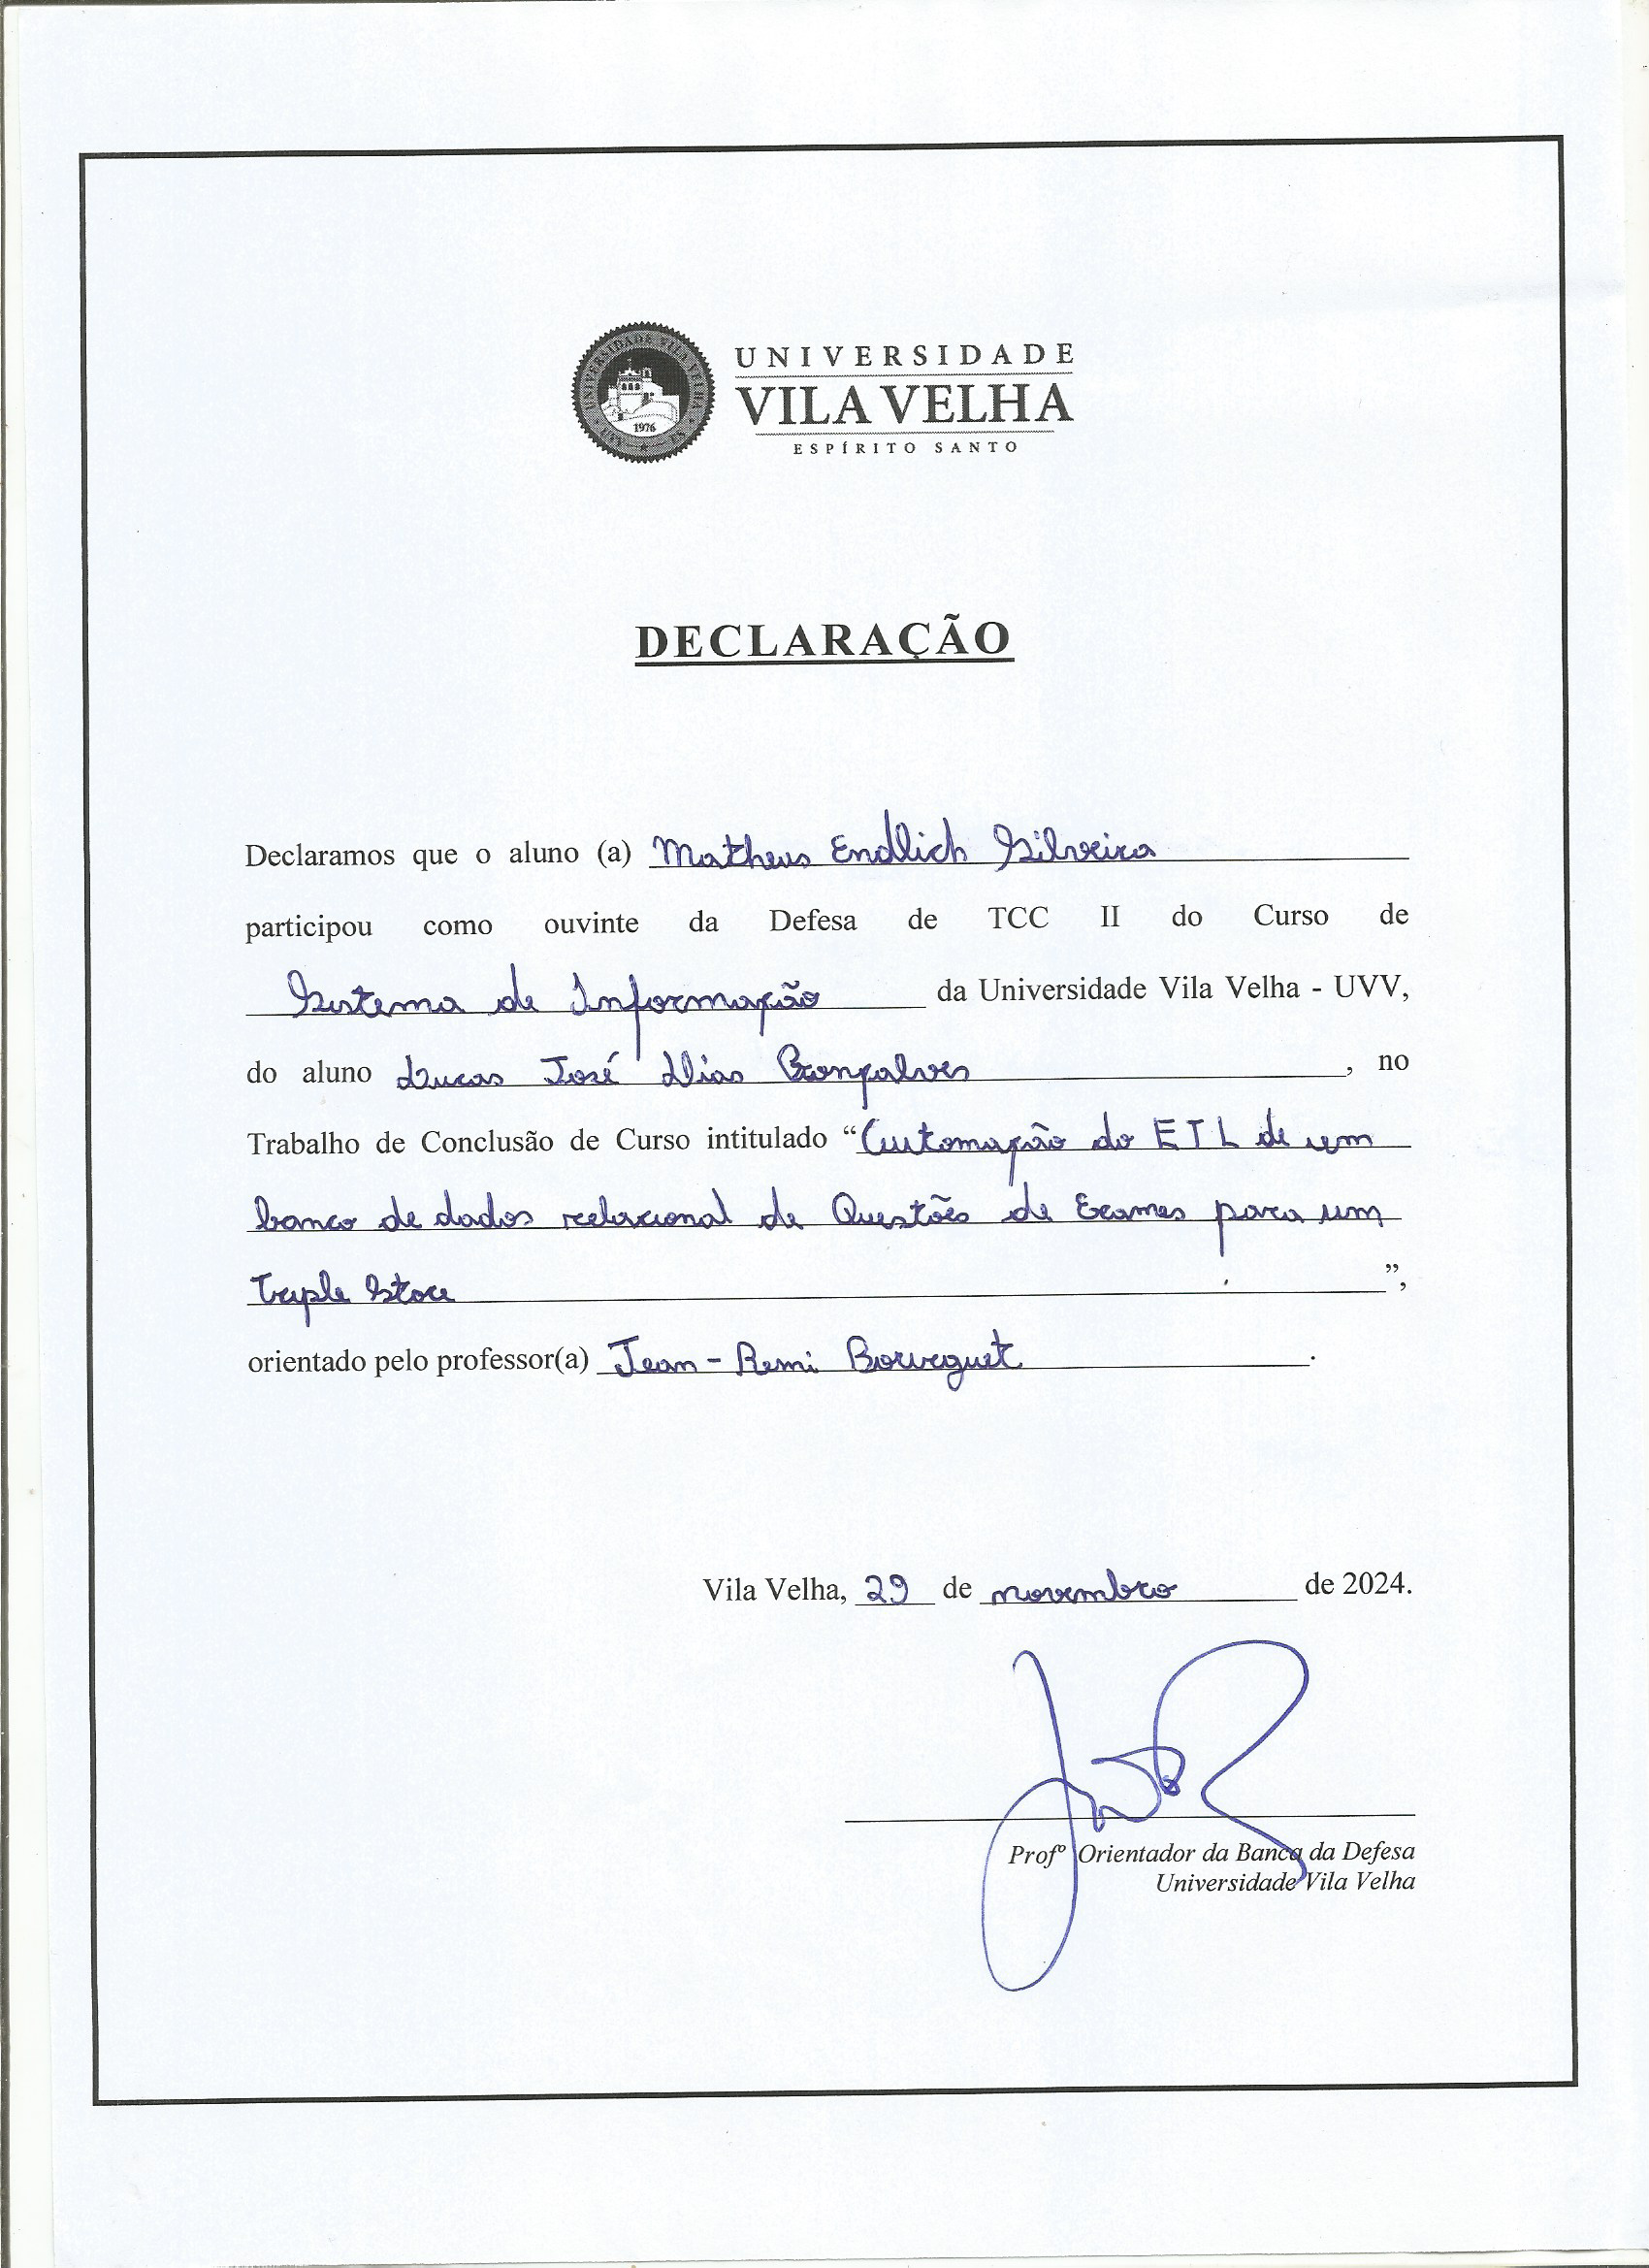 UNIVERSIDADE VILA VELHA
1976
UVV ES
UNIVERSIDADE
VILA VELHA
ESPÍRITO SANTO
DECLARAÇÃO
Declaramos que o aluno (a) Matheus Endlich Silveira
participou como ouvinte da Defesa de TCC II do Curso de
Sistema de Informação da Universidade Vila Velha - UVV,
do aluno Lucas José Dias Gonçalves, no
Trabalho de Conclusão de Curso intitulado “Automação do ETL de um
banco de dados relacional de Questões de Exames para um
Triple Store”,
orientado pelo professor(a) Jean-Remi Bourguet.
Vila Velha, 29 de novembro de 2024.
Profº Orientador da Banca da Defesa
Universidade Vila Velha